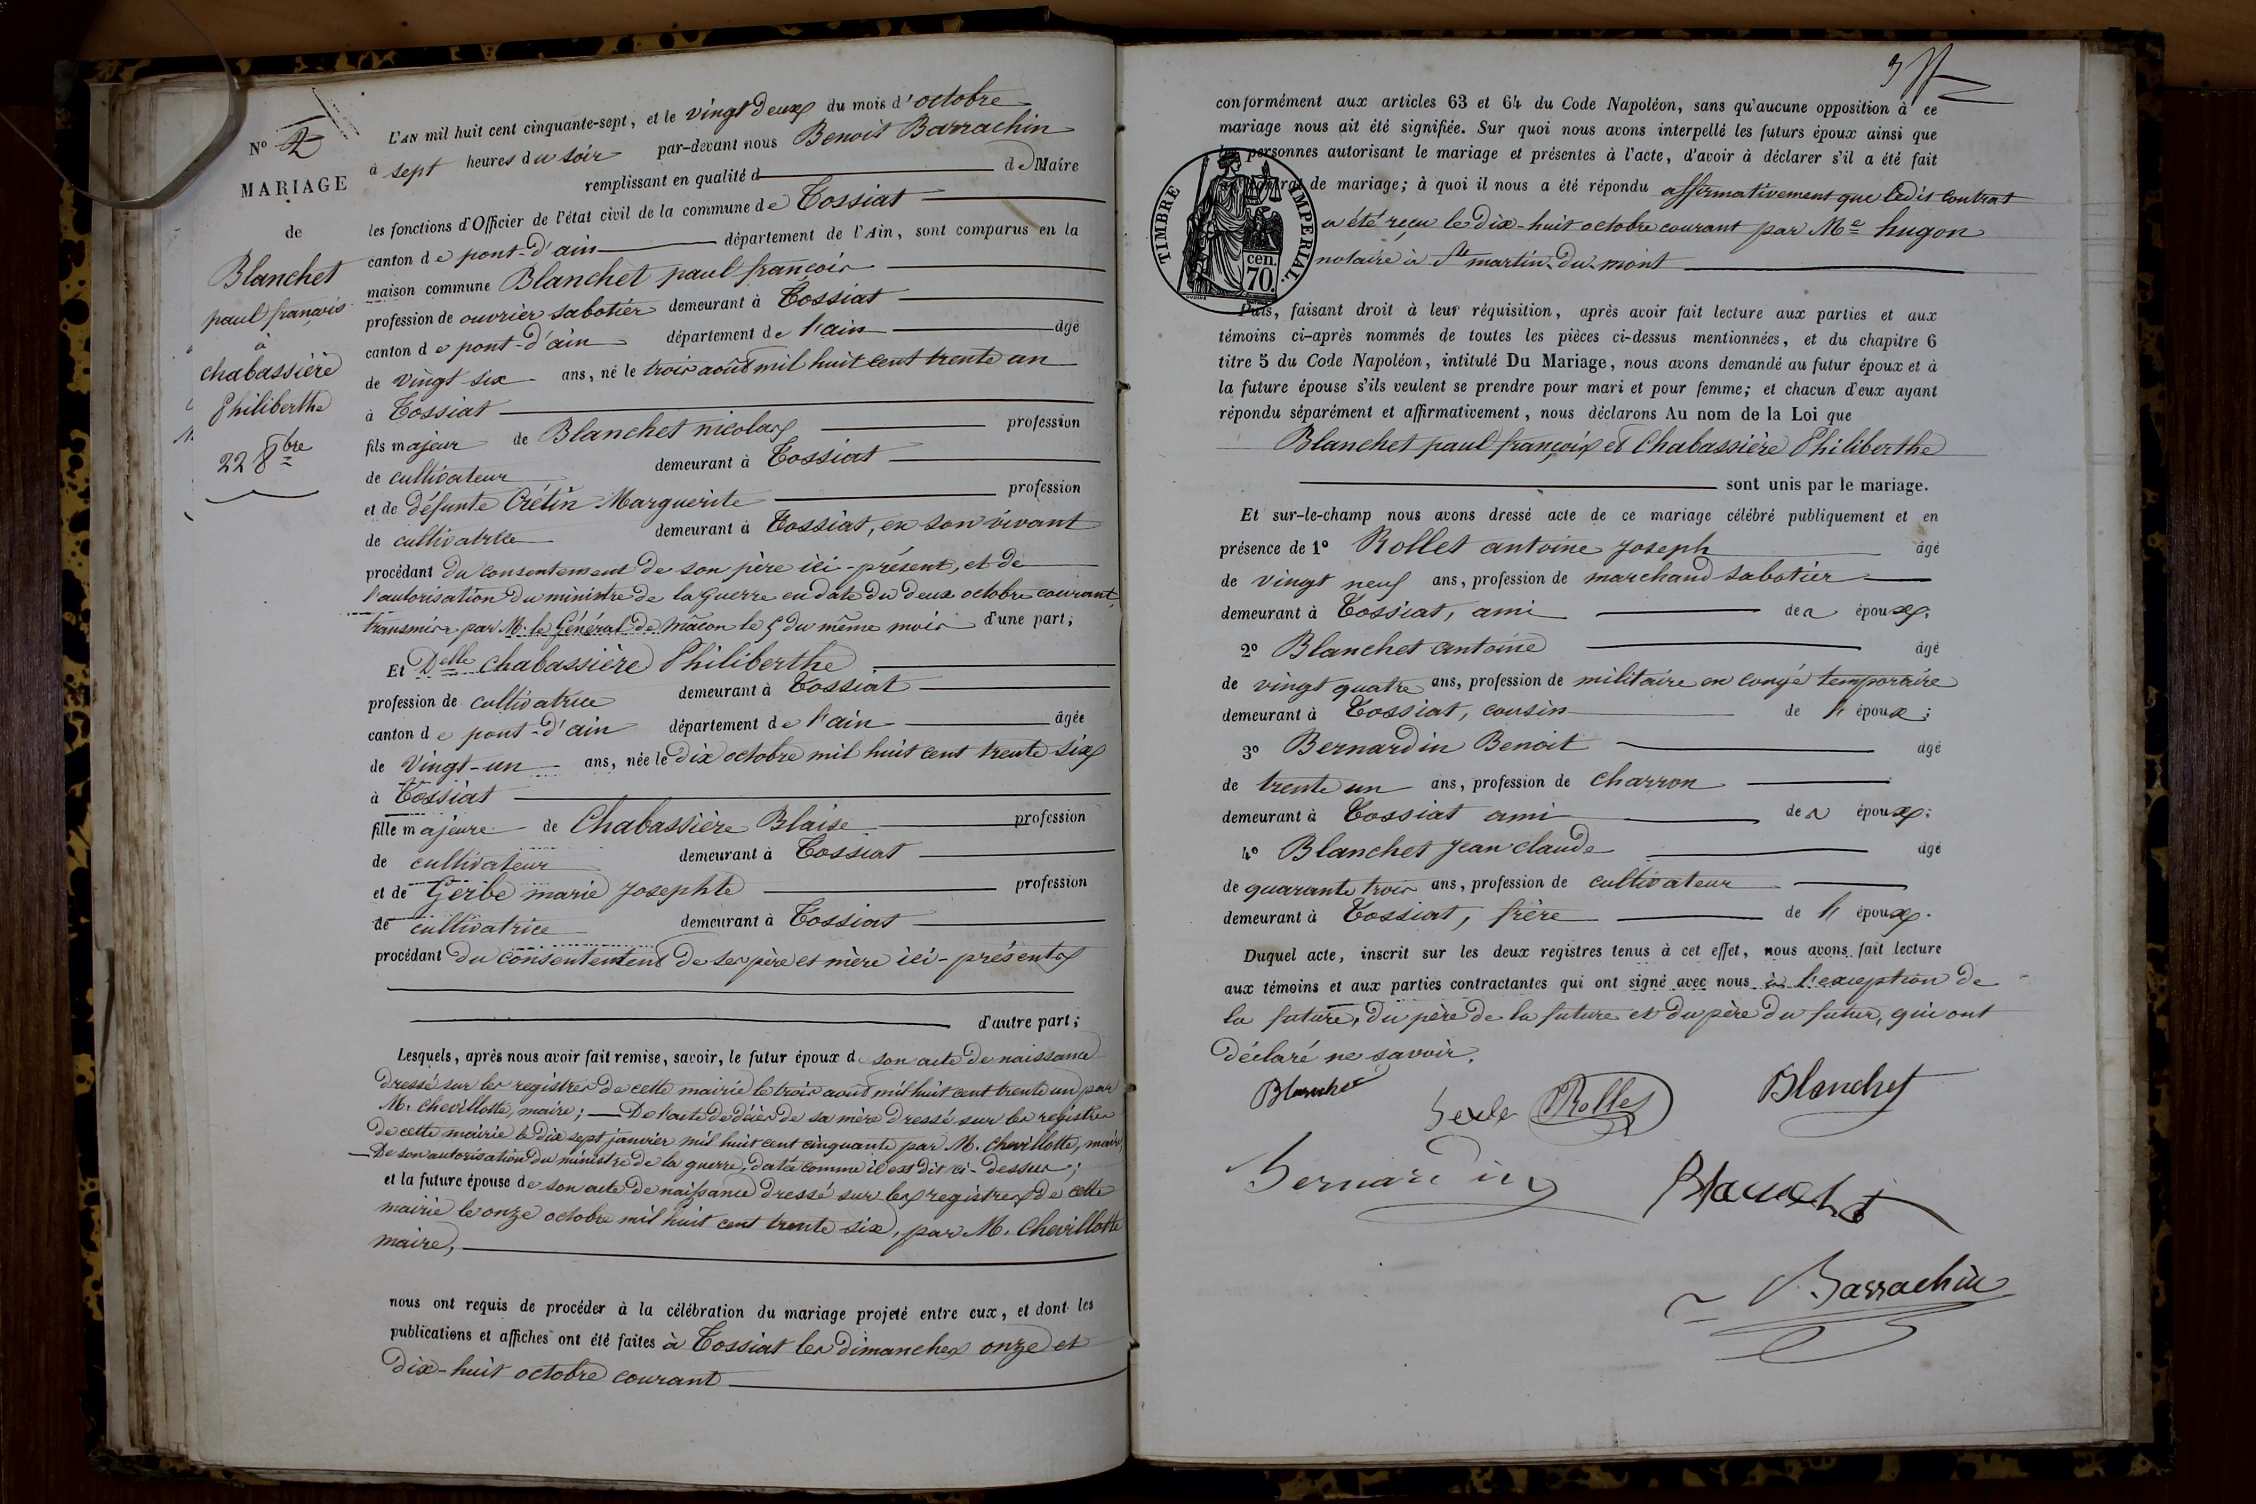 N° 2
MARIAGE
de
Blanchet
paul françois
à
chabassière
Philiberthe
22 8bre
L'AN mil huit cent cinquante-sept, et le vingt deux du mois d'octobre
à sept heures du soir par-devant nous Benoit Barrachin
remplissant en qualité d de Maire
les fonctions d'Officier de l'état civil de la commune de Tossiat
canton de pont-d'ain département de l'Ain, sont comparus en la
maison commune Blanchet paul françois
profession de ouvrier sabotier demeurant à Tossiat
canton de pont-d'ain département de l'ain âgé
de vingt-six ans, né le trois août mil huit cent trente un
à Tossiat
fils majeur de Blanchet nicolas profession
de cultivateur demeurant à Tossiat
et de défunte Crétin Marguerite profession
de cultivatrice demeurant à Tossiat, en son vivant
procédant du consentement de son père ici-présent, et de
l'autorisation du ministre de la guerre en date du deux octobre courant,
transmise par M. le Général de Mâcon le 5 du même mois d'une part;
Et Delle chabassière Philiberthe
profession de cultivatrice demeurant à Tossiat
canton de pont-d'ain département de l'ain âgée
de vingt-un ans, née le dix octobre mil huit cent trente six
à Tossiat
fille majeure de Chabassière Blaise profession
de cultivateur demeurant à Tossiat
et de Gerbe marie Josephte profession
de cultivatrice demeurant à Tossiat
procédant du consentement de ses père et mère ici-présents
d'autre part;
Lesquels, après nous avoir fait remise, savoir, le futur époux de son acte de naissance
dressé sur les registres de cette mairie le trois août mil huit cent trente un par
M. Chevillotte, maire; — De l'acte de décès de sa mère dressé sur les registres
de cette mairie le dix sept janvier mil huit cent cinquante par M. Chevillotte, maire,
— De son autorisation du ministre de la guerre, datée comme il est dit ci-dessus;
et la future épouse de son acte de naissance dressé sur les registres de cette
mairie le onze octobre mil huit cent trente six, par M. Chevillotte
maire,
nous ont requis de procéder à la célébration du mariage projeté entre eux, et dont les
publications et affiches ont été faites à Tossiat les dimanches onze et
dix-huit octobre courant
conformément aux articles 63 et 64 du Code Napoléon, sans qu'aucune opposition à ce
mariage nous ait été signifiée. Sur quoi nous avons interpellé les futurs époux ainsi que
les personnes autorisant le mariage et présentes à l'acte, d'avoir à déclarer s'il a été fait
contrat de mariage; à quoi il nous a été répondu affirmativement que ledit contrat
a été reçu le dix-huit octobre courant par Me hugon
notaire à St martin-du-mont
TIMBRE IMPERIAL.
70 cen.
Puis, faisant droit à leur réquisition, après avoir fait lecture aux parties et aux
témoins ci-après nommés de toutes les pièces ci-dessus mentionnées, et du chapitre 6
titre 5 du Code Napoléon, intitulé Du Mariage, nous avons demandé au futur époux et à
la future épouse s'ils veulent se prendre pour mari et pour femme; et chacun d'eux ayant
répondu séparément et affirmativement, nous déclarons Au nom de la Loi que
Blanchet paul françois et Chabassière Philiberthe
sont unis par le mariage.
Et sur-le-champ nous avons dressé acte de ce mariage célébré publiquement et en
présence de 1° Rollet antoine joseph âgé
de vingt neuf ans, profession de marchand sabotier
demeurant à Tossiat, ami des époux;
2° Blanchet antoine âgé
de vingt quatre ans, profession de militaire en congé temporaire
demeurant à Tossiat, cousin de l'époux;
3° Bernardin Benoit âgé
de trente un ans, profession de charron
demeurant à Tossiat ami des époux;
4° Blanchet jean claude âgé
de quarante trois ans, profession de cultivateur
demeurant à Tossiat, frère de l'époux.
Duquel acte, inscrit sur les deux registres tenus à cet effet, nous avons fait lecture
aux témoins et aux parties contractantes qui ont signé avec nous à l'exception de
la future, du père de la future et du père du futur, qui ont
déclaré ne savoir.
Blanchet Rollet Blanchet
Bernardin Blanchet
Barrachin